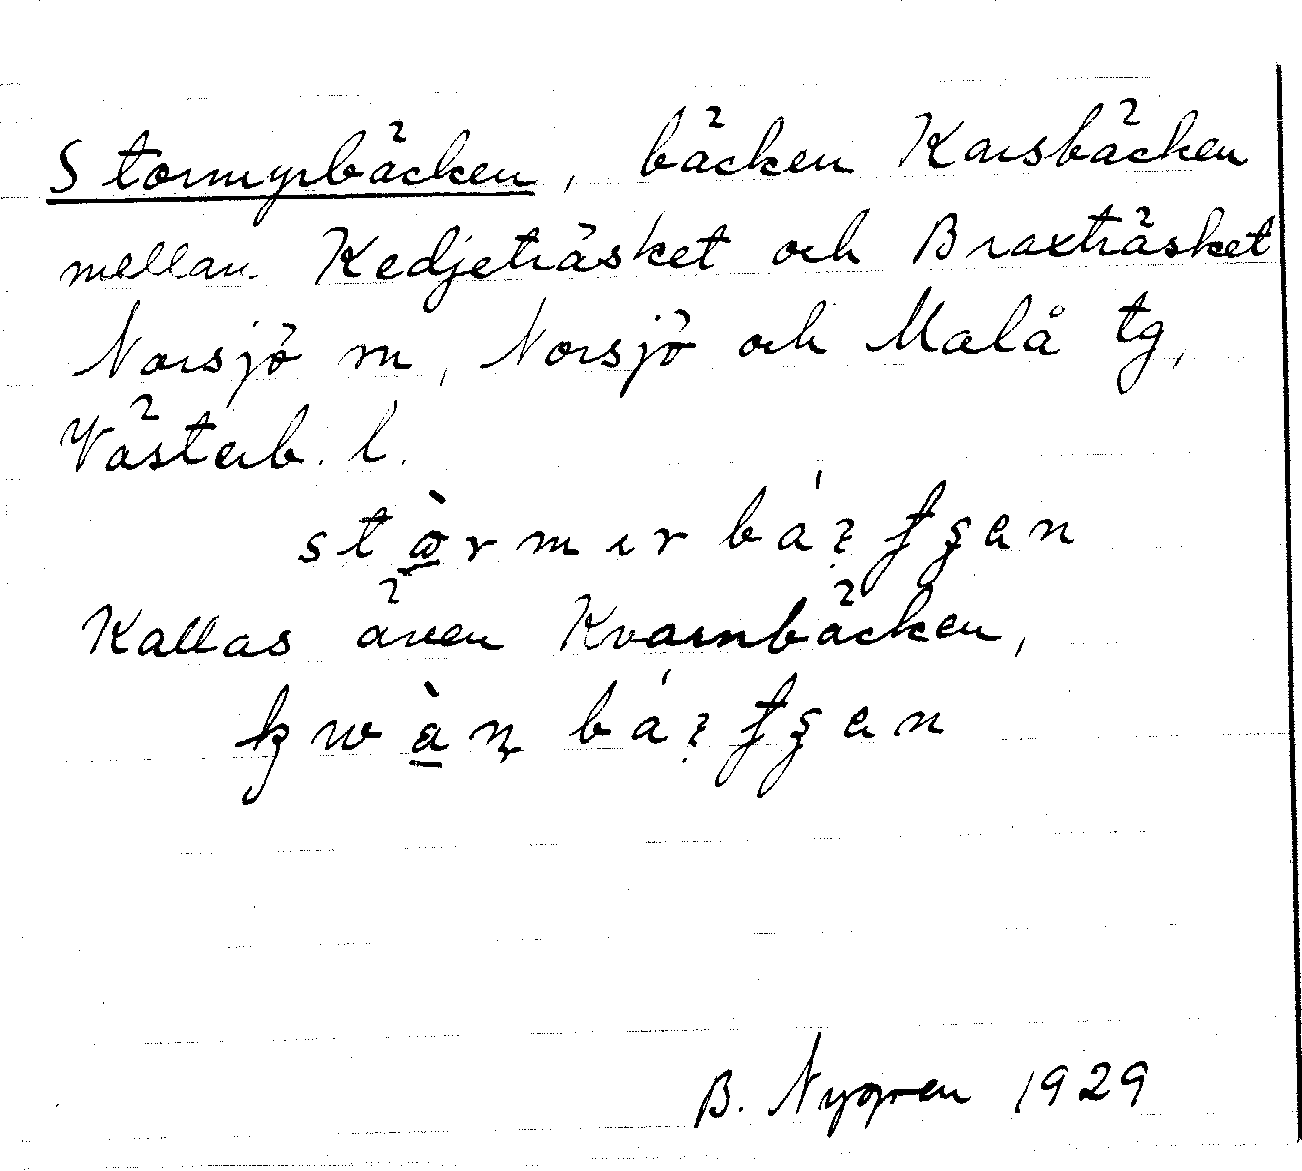 Stormyrbäcken, bäcken Karsbäcken
mellan Kedjeträsket och Braxträsket
Norsjö m, Norsjö och Malå tg,
Västerb. l.
Kallas även Kvarnbäcken,
B. Nygren 1929